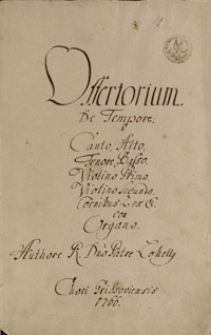 Offertorium.
De Tempore.
à
Canto, Alto,
Tenore, Basso.
Violino Primo.
Violino Secundo.
Cornibus
con
Organo.
Authore R. Dno Patre
Chori
1766.